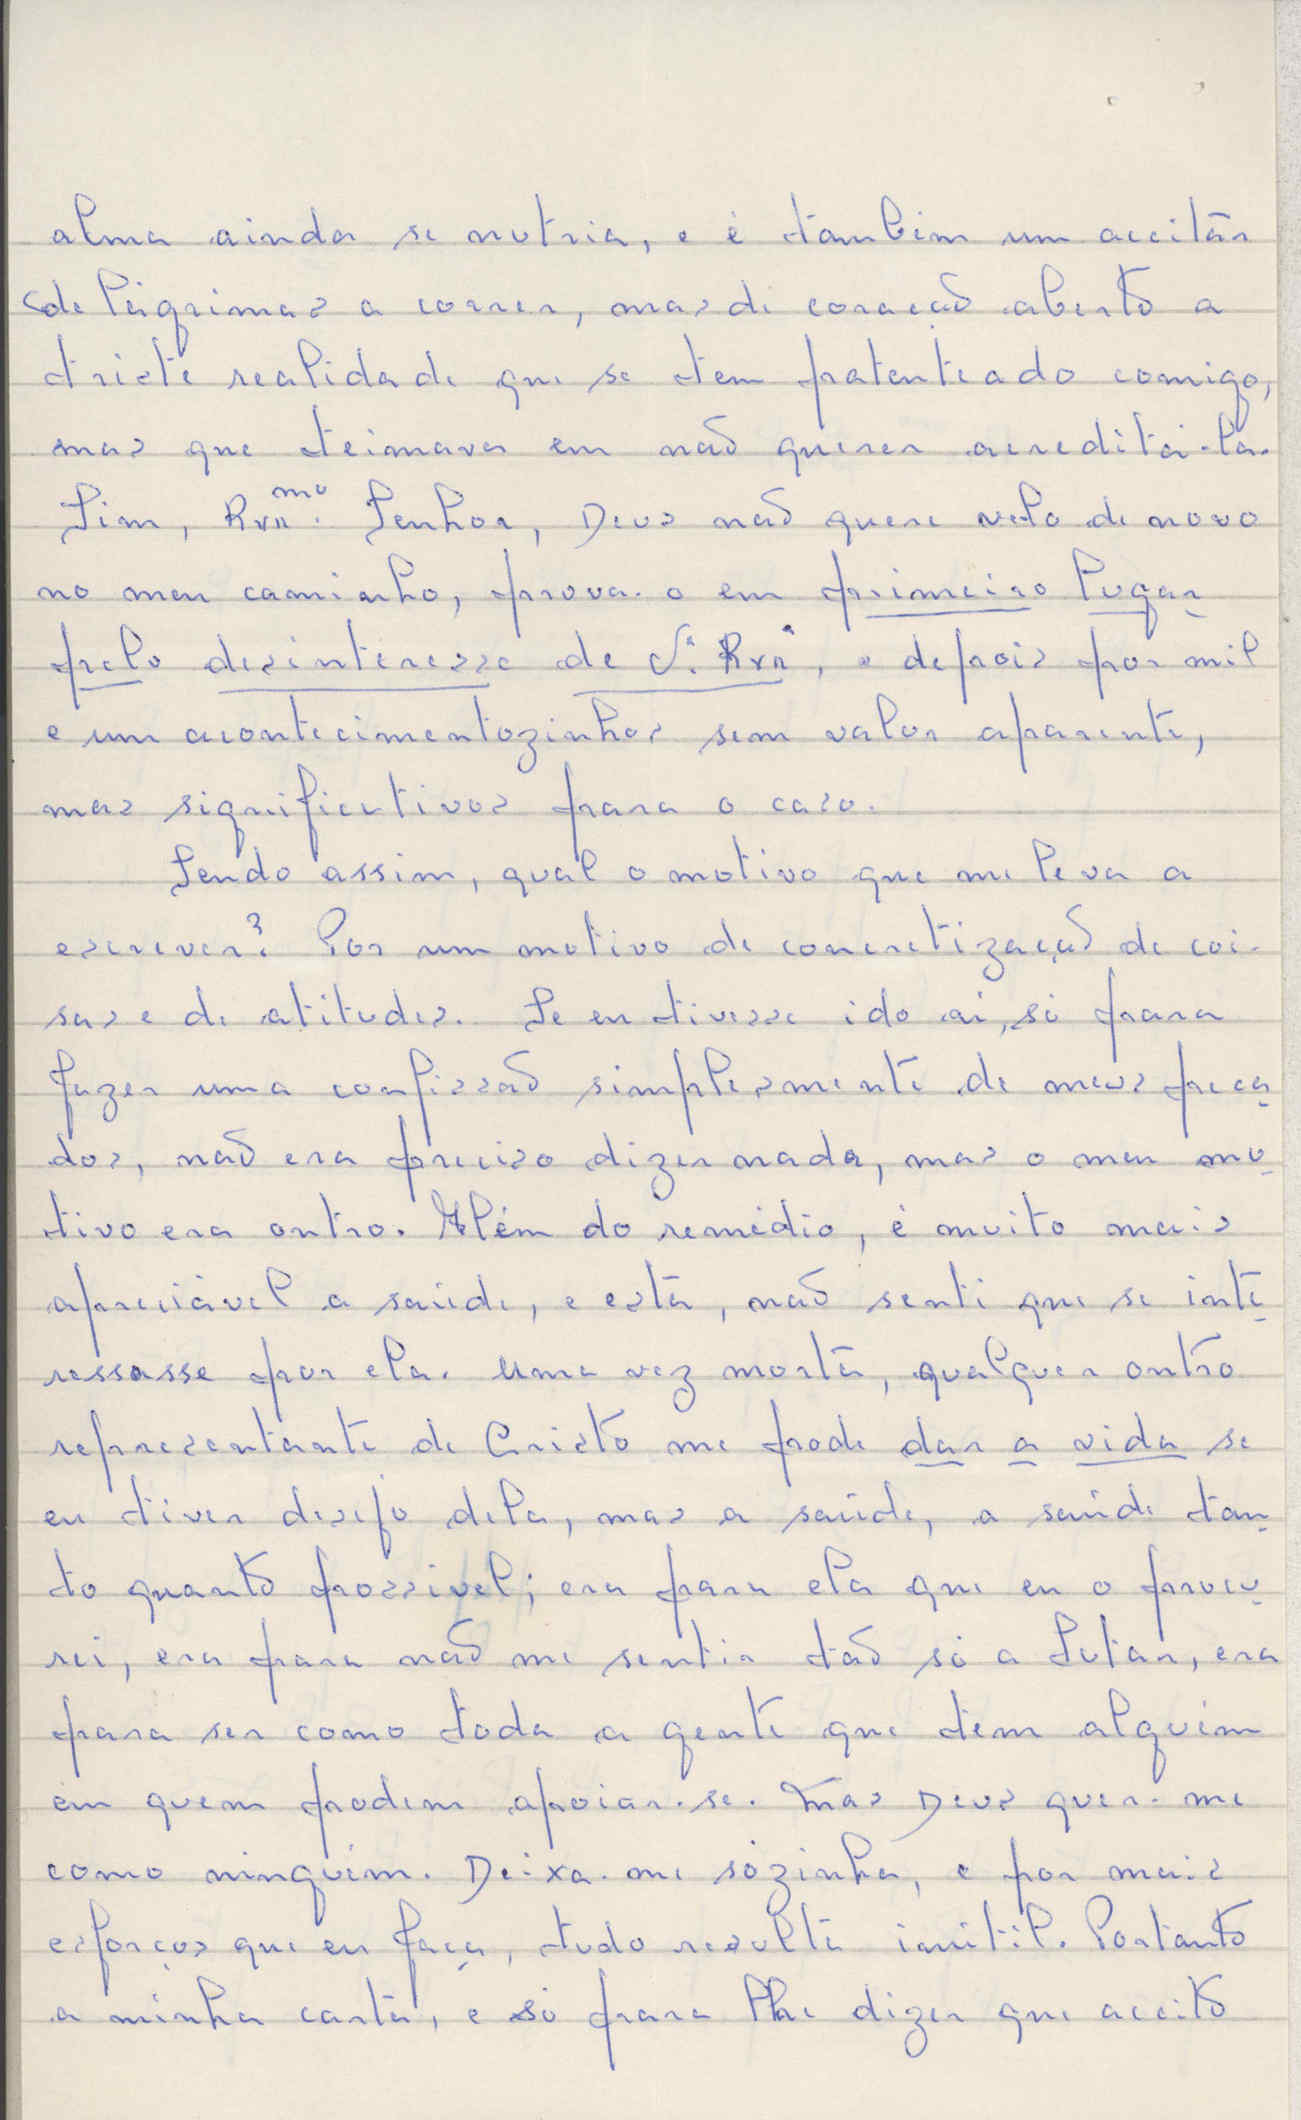 alma ainda se nutria, e é também um aceitar
de lágrimas a correr, mas de coração aberto a
triste realidade que se tem patenteado comigo,
mas que teimava em não querer acreditá-la.
Sim, Rvn.mo Senhor, Deus não quere vê-lo de novo
no meu caminho, prova-o em primeiro lugar
pelo desinteresse de S.ª Rvnª, e depois por mil
e um acontecimentozinhos sem valor aparente,
mas significativos para o caso.
Sendo assim, qual o motivo que me leva a
escrever? Por um motivo de concretização de coi-
sas e de atitudes. Se eu tivesse ido aí, só para
fazer uma confissão simplesmente de meus peca
dos, não era preciso dizer nada, mas o meu mo
tivo era outro. Além do remédio, é muito mais
apreciável a saúde, e esta, não senti que se inte
ressasse por ela. Uma vez morta, qualquer outro
representante de Cristo me pode dar a vida se
eu tiver desejo dela, mas a saúde, a saúde tan
to quanto possível; era para ela que eu o procu
rei, era para não me sentir tão só a lutar, era
para ser como toda a gente que tem alguém
em quem podem apoiar-se. Mas Deus quer-me
como ninguém. Deixa-me sòzinha, e por mais
esforços que eu faça, tudo resulta inútil. Portanto
a minha carta, e só para lhe dizer que aceito